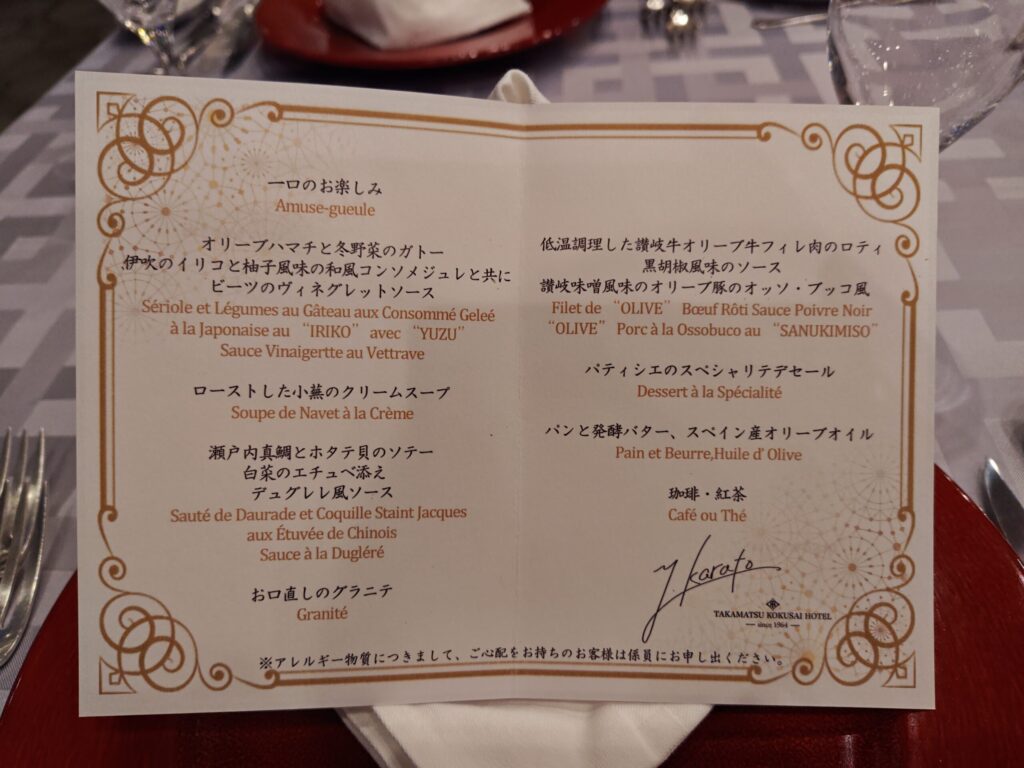 一口のお楽しみ
Amuse-gueule
オリーブハマチと冬野菜のガトー
伊吹のイリコと柚子風味の和風コンソメジュレと共に
ビーツのヴィネグレットソース
Sériole et Légumes au Gâteau aux Consommé Geleé
à la Japonaise au “IRIKO” avec “YUZU”
Sauce Vinaigertte au Vettrave
ローストした小蕪のクリームスープ
Soupe de Navet à la Crème
瀬戸内真鯛とホタテ貝のソテー
白菜のエチュベ添え
デュグレレ風ソース
Sauté de Daurade et Coquille Staint Jacques
aux Étuvée de Chinois
Sauce à la Dugléré
お口直しのグラニテ
Granité
低温調理した讃岐牛オリーブ牛フィレ肉のロティ
黒胡椒風味のソース
讃岐味噌風味のオリーブ豚のオッソ・ブッコ風
Filet de “OLIVE” Bœuf Rôti Sauce Poivre Noir
“OLIVE” Porc à la Ossobuco au “SANUKIMISO”
パティシエのスペシャリテデセール
Dessert à la Spécialité
パンと発酵バター、スペイン産オリーブオイル
Pain et Beurre,Huile d’ Olive
珈琲・紅茶
Café ou Thé
Y Karato
TAKAMATSU KOKUSAI HOTEL
since 1964
※アレルギー物質につきまして、ご心配をお持ちのお客様は係員にお申し出ください。